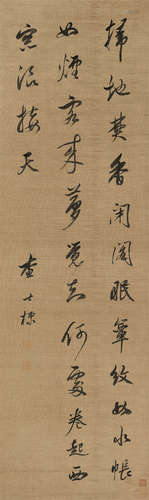 掃地焚香閉閣眠簟紋如水帳
如煙客来夢覺知何處卷起西
窓浪接天
查士標